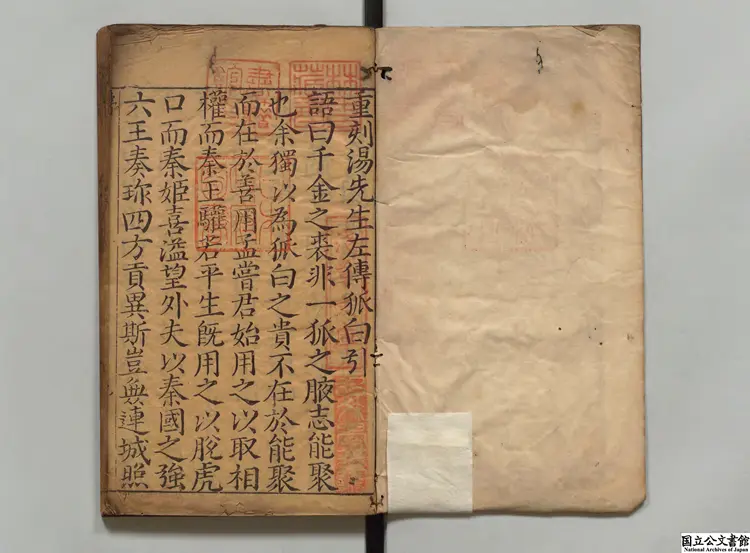 重刻湯先生左傳狐白引
語曰千金之裘非一狐之腋志能聚
也余獨以為狐白之貴不在於能聚
而在於善用孟嘗君始用之以取相
權而秦王驩若平生既用之以脫虎
口而秦姬喜溢望外夫以秦國之強
六王奏珎四方貢異斯豈無連城照
国立公文書館
National Archives of Japan